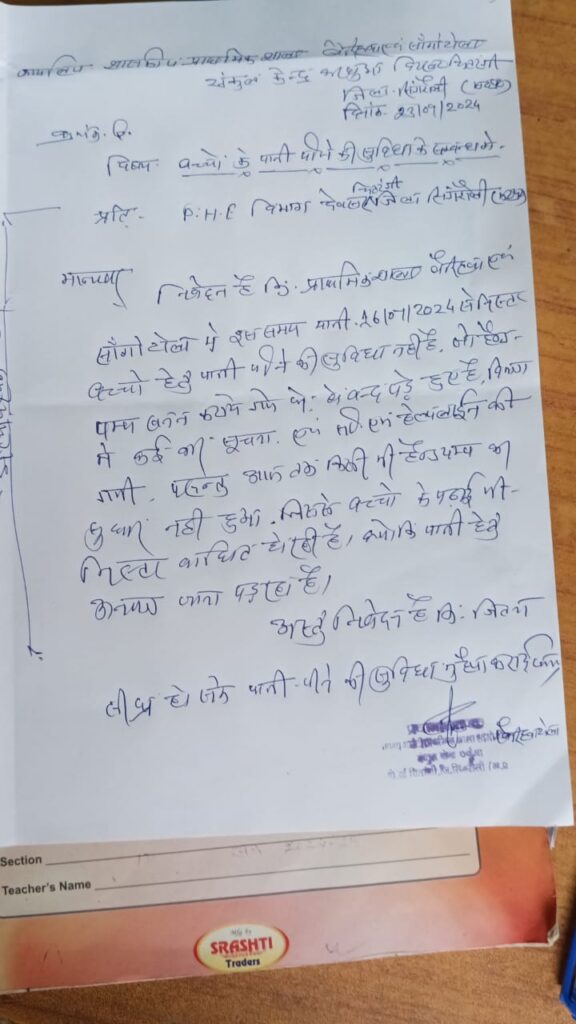 कार्यालय शासकीय प्राथमिक शाला एवं सौंगोटोला
संकुल केन्द्र
जिला सिंगरौली (म०प्र०)
दिनांक 23/07/2024
विषय:- बच्चों के पानी पीने की सुविधा के सम्बन्ध मे.
प्रति- P.H.E विभाग देवसर जिला सिंगरौली (म०प्र०)
चितरंगी
निवेदन है कि प्राथमिक शाला एवं
सौंगोटोला मे इस समय पानी 16/07/2024 से निरन्तर
बच्चो हेतु पानी पीने की सुविधा नही है. जो हैण्ड-
पम्प खनन कराये गये थे. वे बन्द पड़े हुए है. विभाग
मे कई बार सूचना. एवं एवं हेल्पलाईन की
गयी. परन्तु आज तक किसी भी हैण्डपम्प का
सुधार नही हुआ. जिससे बच्चो के पढाई भी-
निरन्तर बाधित हो रही है। क्योकि पानी हेतु
अन्यत्र जाना पड़ रहा है।
अस्तु निवेदन है कि जितना
शीघ्र हो सके पानी पीने की सुविधा मुहैया कराई जाय
Section
Teacher's Name
SRASHTI
Traders